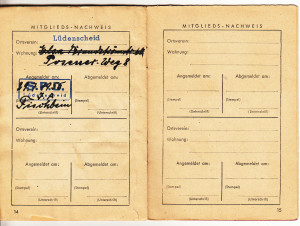 MITGLIEDS-NACHWEIS
Ortsverein: Lüdenscheid
Wohnung:
Posener Weg 8
Angemeldet am: Abgemeldet am:
S.P.D.
Lüdenscheid
(Stempel) (Stempel)
(Unterschrift) (Unterschrift)
Ortsverein:
Wohnung:
Angemeldet am: Abgemeldet am:
(Stempel) (Stempel)
(Unterschrift) (Unterschrift)
14
MITGLIEDS-NACHWEIS
Ortsverein:
Wohnung:
Angemeldet am: Abgemeldet am:
(Stempel) (Stempel)
(Unterschrift) (Unterschrift)
Ortsverein:
Wohnung:
Angemeldet am: Abgemeldet am:
(Stempel) (Stempel)
(Unterschrift) (Unterschrift)
15